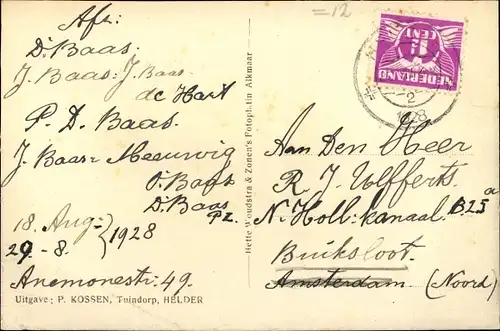 =12
Afz:
D. Baas.
J. Baas: J. Baas
de Hart
P. D. Baas.
J. Baas= Meeuwig
O. Baas
D. Baas
Pz.
18. Aug:
29 - 8. } 1928
Anemonestr: 49.
Uitgave; P. KOSSEN, Tuindorp, HELDER
Hette Woudstra & Zonen's Fotoph. tin Alkmaar
1
CENT
NEDERLAND
2
1928
Aan Den Heer
R. J. Ulfferts.
N. Holl: kanaal B25a
Buiksloot.
Amsterdam (Noord)